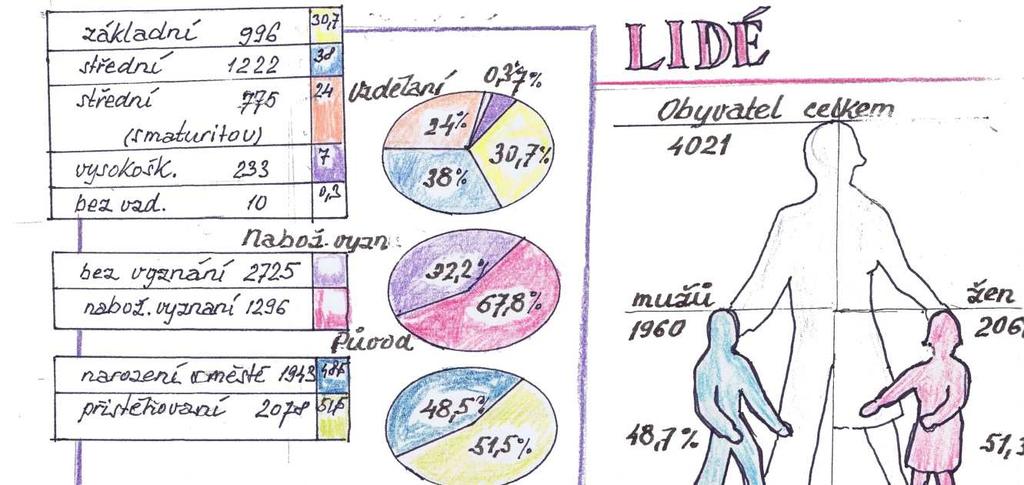 základní 996 30,7
střední 1222 38
střední 775 24
(s maturitov)
vysokošk. 233 7
bez vzd. 10 0,3
Vzdělaní
0,3% 7%
24%
30,7%
38%
Nabož. vyzn
bez vyznání 2725
nabož. vyznaní 1296
32,2%
67,8%
Původ
narození v městě 1943 48,5
přistěhovaní 2078 51,5
48,5%
51,5%
LIDÉ
Obyvatel celkem
4021
mužů
1960
žen
206
48,7%
51,3